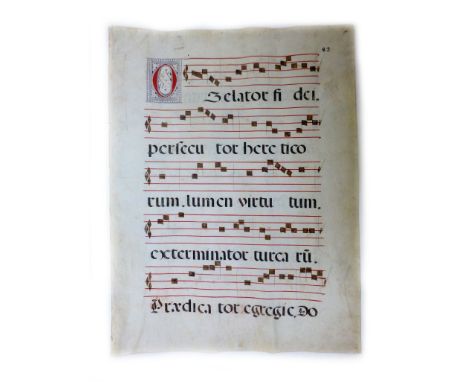 62
O
Selator fi dei.
persecu tor here tico
rum. lumen virtu tum.
exterminator turca rū.
Prædica tor egregie, Do